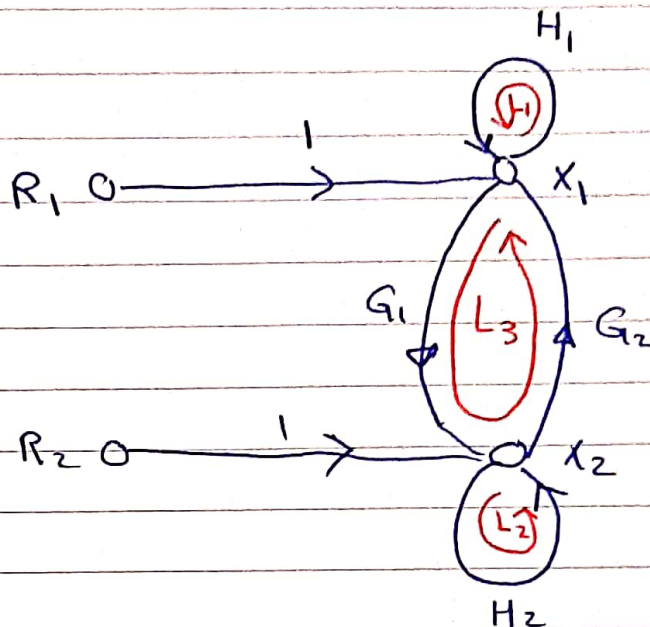 H₁
L₁
1
R₁
X₁
G₁
L₃
G₂
1
R₂
X₂
L₂
H₂